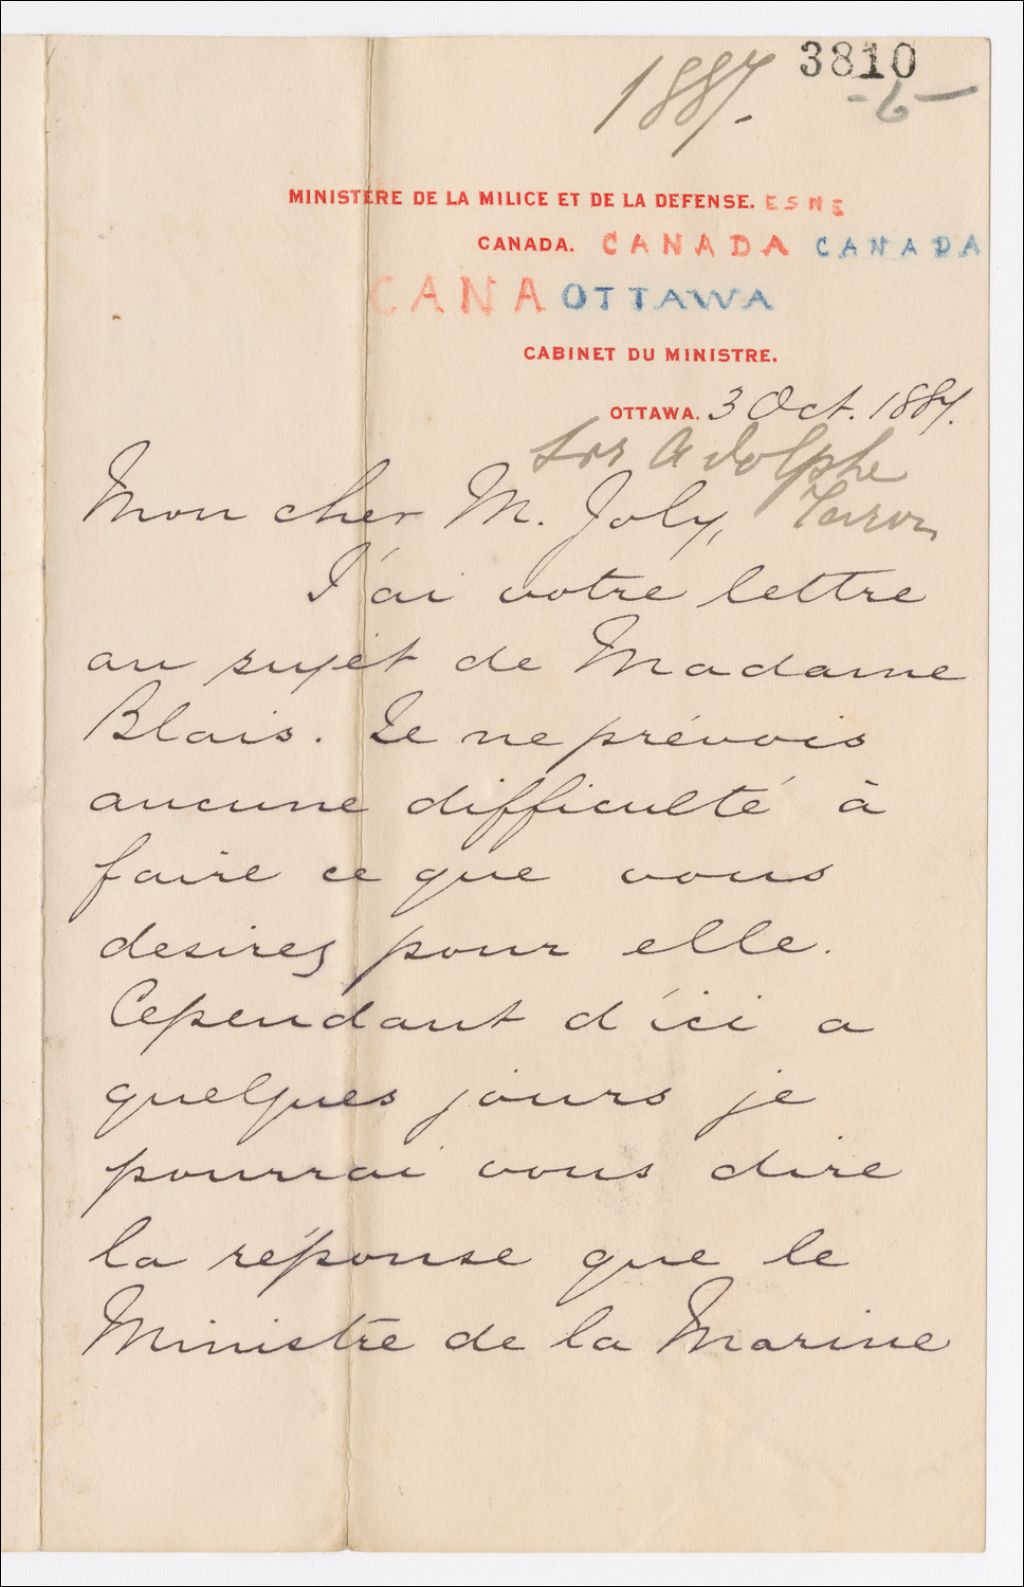 3810
1887.
-6-
MINISTERE DE LA MILICE ET DE LA DEFENSE. ESNE
CANADA. CANADA CANADA
CANA OTTAWA
CABINET DU MINISTRE.
OTTAWA. 3 Oct. 1887.
Sir Adolphe
Mon cher M. Joly,
J'ai votre lettre
au sujet de Madame
Blais. Je ne prévois
aucune difficulté à
faire ce que vous
desirez pour elle.
Cependant d'ici a
quelques jours je
pourrai vous dire
la réponse que le
Ministre de la Marine